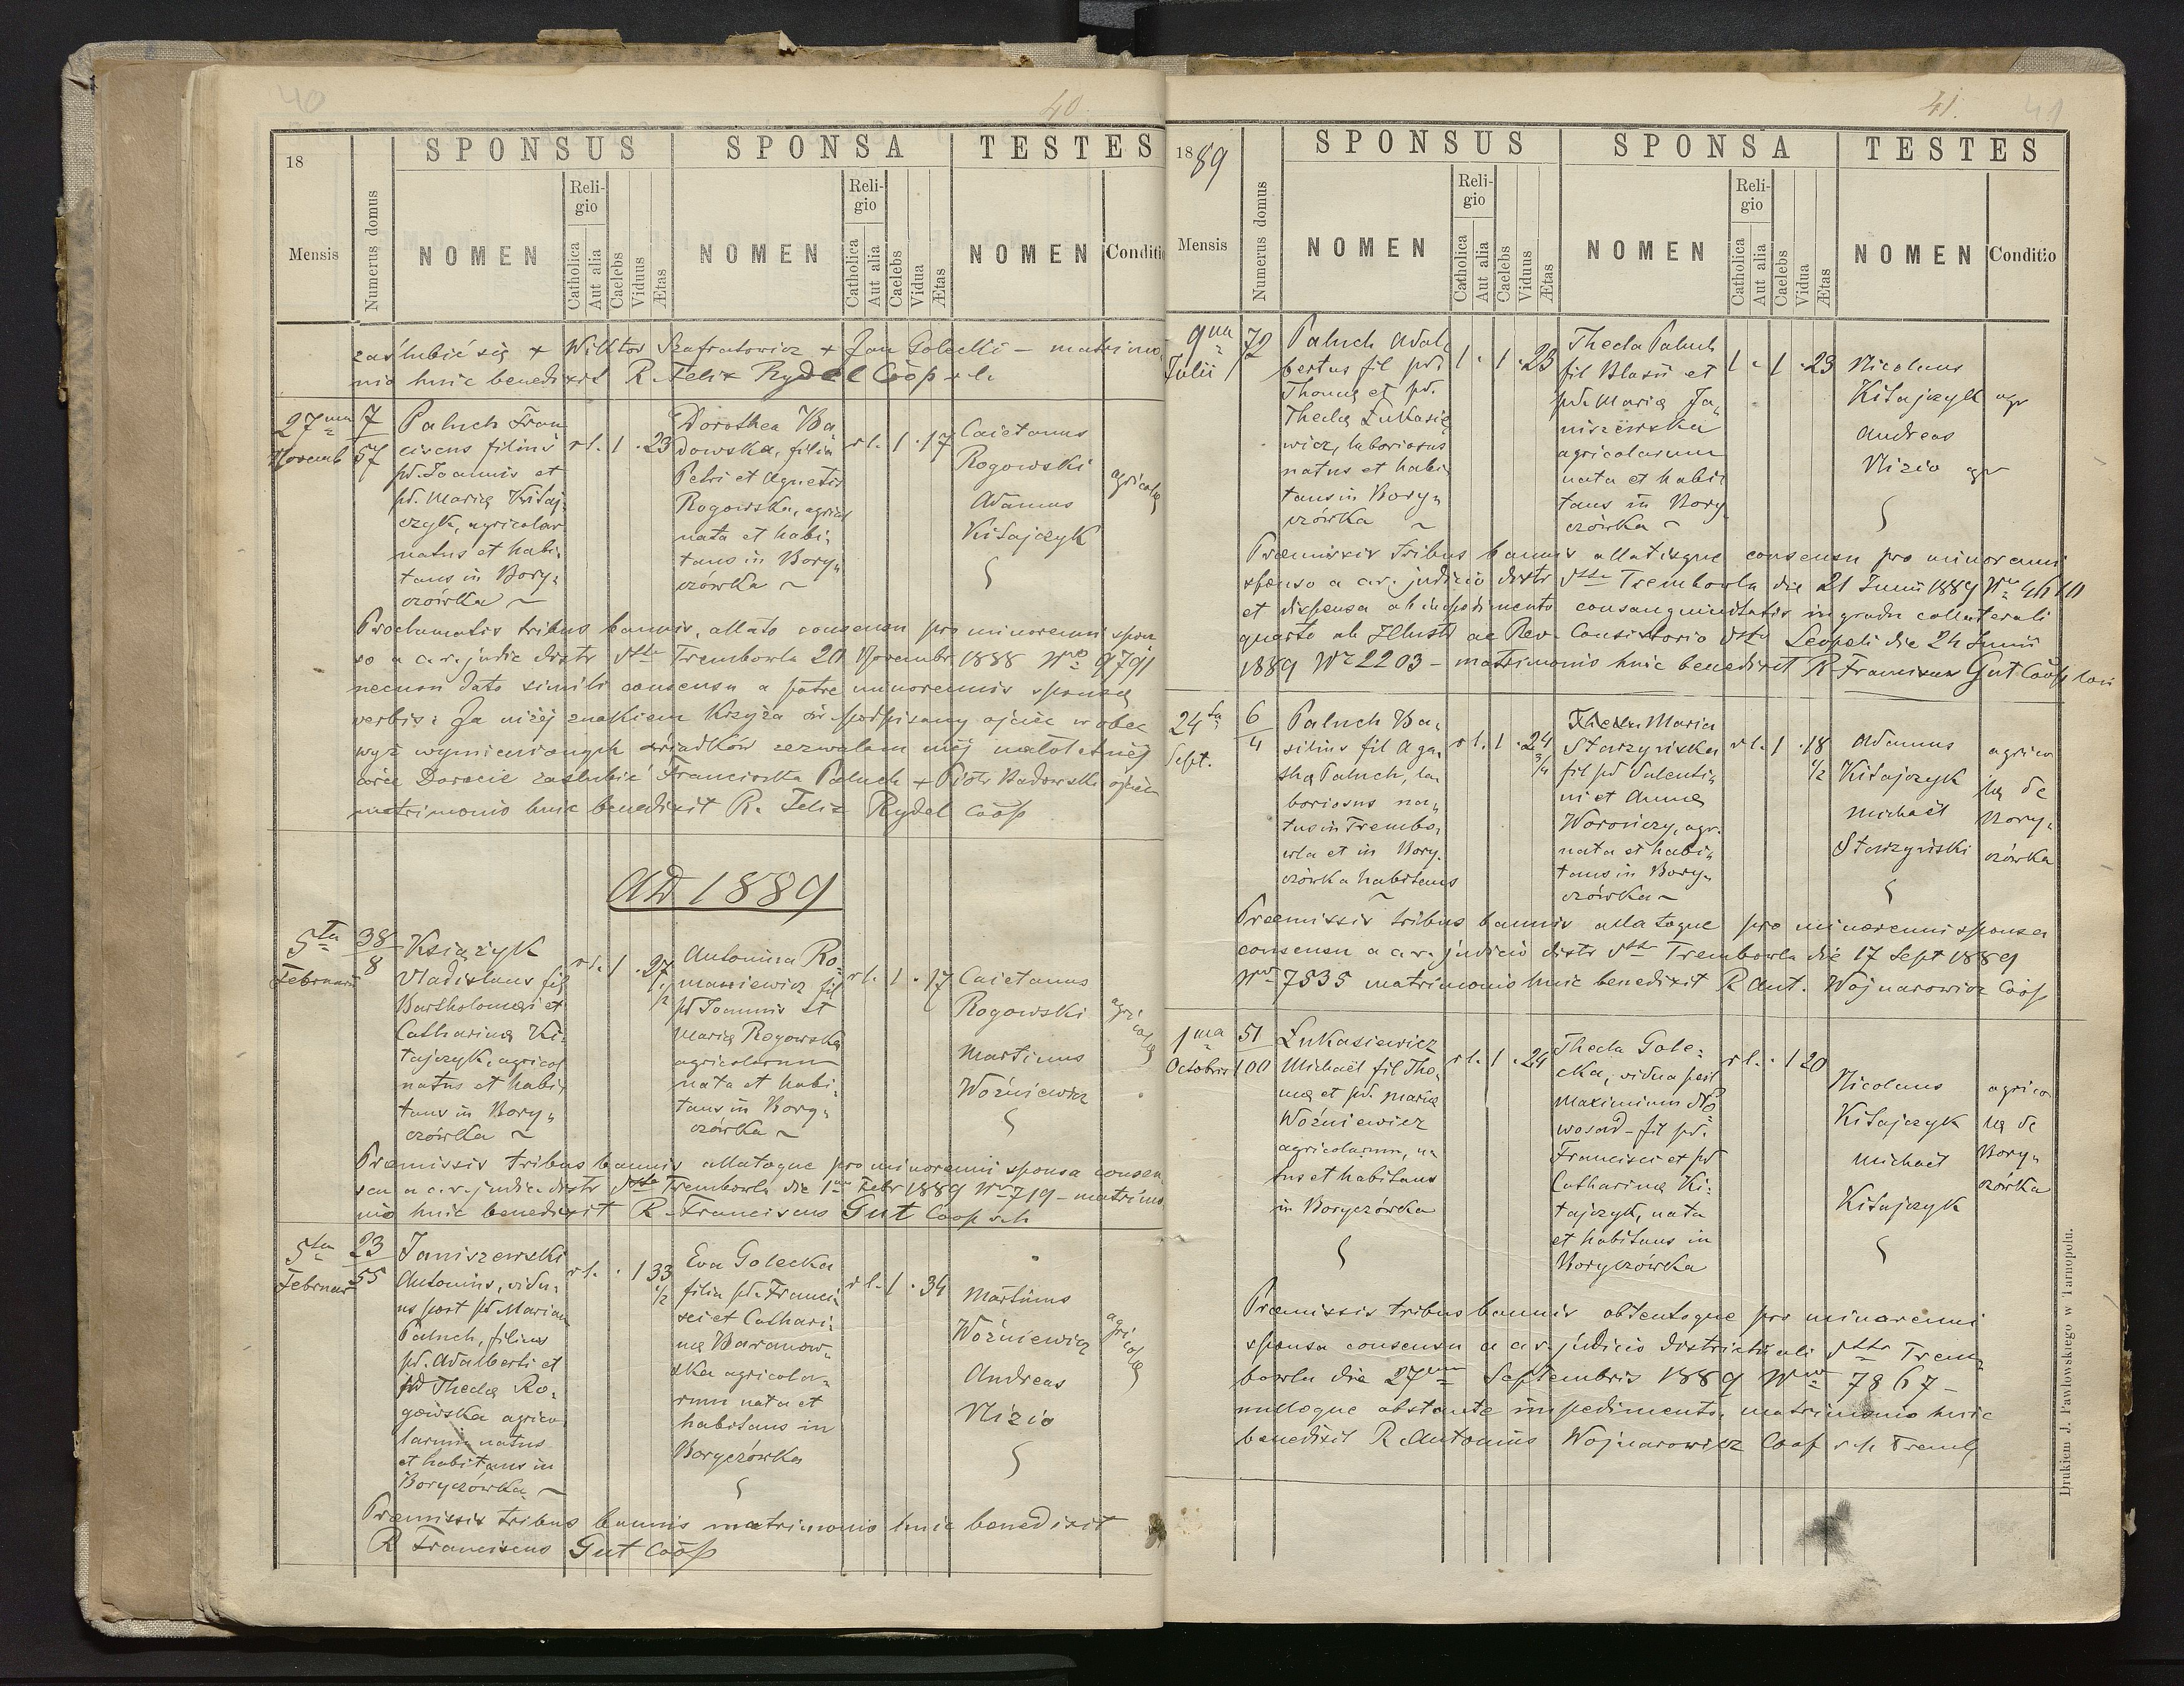 40
40.
18
SPONSUS
SPONSA
TESTES
Mensis
Numerus domus
NOMEN
Religio
Catholica
Aut alia
Caelebs
Viduus
Ætas
NOMEN
Religio
Catholica
Aut alia
Caelebs
Vidua
Ætas
NOMEN
Conditio
zaślubić się + Wiktor Szafratowicz + Jan Golecki – matrimo,
nio huic benedixit R. Felix Rydel Coop r. l.
27ma
Novemb
7
57
Paluch Fran
ciscus filius
pd. Joannis et
pd. Mariæ Kitaj,
czyk, agricolar
natus et habi,
tans in Bory,
czówka ~
r l. 1 . 23
Dorothea Ba
dowska, filia
Petri et Agnetis
Rogowska, agricol
nata et habi,
tans in Bory,
czówka ~
r l. 1 . 17
Caietanus
Rogowski
Adamus
Kitajczyk
agricolæ
Proclamatis tribus bannis, allato consensu pro minorenni spon
so a c. r. judic distr dtto Trembowla 20 Novembr 1888 Nro 9791
necnon dato simili consensu a patre minorennis sponsæ
verbis: Ja niżéj znakiem krzyża św podpisany ojciec w obec
wyż wymienionych świadków zezwalam méj małoletniéj
córce Dorocie zaślubić Franciszka Paluch + Piotr Badowski ojciec
matrimonio huic benedixit R. Felix Rydel Coop
AD 1889
5ta
Februarii
38
8
Książyk
Vladislaus fil
Bartholomæi et
Catharinæ Ki,
tajczyk, agricol
natus et habi,
tans in Bory,
czówka ~
r l. 1 . 27 1/2
Antonina Ro,
maniewicz fil
pd Joannis et
Mariæ Rogowska
agricolarum
nata et habi,
tans in Bory,
czówka ~
r l. 1 . 17
Caietanus
Rogowski
Martinus
Woźniewicz
agricolæ
Præmissis tribus bannis allatoque pro minorenni sponsa consen,
su a c. r. judic. distr dtto Trembowla die 1ma Febr 1889 Nro 719 – matrimo,
nio huic benedixit R. Franciscus Gut Coop r. l.
5ta
Februar
23
55
Janiszewski
Antonius, vidu,
us post pd Mariam
Paluch, filius
pd. Adalberti et
pd Theclæ Ro,
gowska agrico,
larum natus
et habitans in
Boryczówka ~
r l. . 1 33 1/2
Eva Golecka
filia pd. Franci,
sci et Cathari,
næ Baranow,
ska agricola,
rum nata et
habitans in
Boryczówka
r l. 1 . 34
Martinus
Woźniewicz
Andreas
Nizio
agricolæ
Præmissis tribus bannis matrimonio huic benedixit
R Franciscus Gut Coop
41.
41
1889
SPONSUS
SPONSA
TESTES
Mensis
Numerus domus
NOMEN
Religio
Catholica
Aut alia
Caelebs
Viduus
Ætas
NOMEN
Religio
Catholica
Aut alia
Caelebs
Vidua
Ætas
NOMEN
Conditio
9na
Julii
72
Paluch Adal,
bertus fil pd.
Thomæ et pd.
Theclæ Łukasie
wicz, laboriosus
natus et habi,
tans in Bory,
czówka ~
1 . 1 . 23
Thecla Paluch
fil Blasii et
pd. Mariæ Ja,
niszewska
agricolarum
nata et habi,
tans in Bory,
czówka ~
1 . 1 . 23
Nicolaus
Kitajczyk agr
Andreas
Nizio agr
Præmissis tribus bannis allatisque consensu pro minorenni
sponso a c. r. judicio distr dtto Trembowla die 21 Junii 1889 Nro
et dispensa ab impedimento consanguinitatis in gradu collaterali
quarto ab Illust ac Rev. Consistorio dtto Leopoli die 24 Junii
1889 Nr 2203 – matrimonio huic benedixit R Franciscus Gut Coop
24ta
Sept.
6
4
Paluch Ba,
silius fil Aga,
thæ Paluch, la
boriosus na,
tus in Trembo,
wla et in Bory,
czówka habitans
r l. 1 . 24 3/4
Maria
Starzyńska
fil pd Valenti,
ni et Annæ
Woroniczy, agr.
nata et habi,
tans in Bory,
czówka ~
r l. 1 . 18 1/2
Adamus
Kitajczyk
Michaël
Starzyński
agrico
læ de
Bory,
czówka
Præmissis tribus bannis allatoque pro minorenni sponsa
consensu a c. r. judicio distr dtto Trembowla die 17 Sept 1889
Nro 7535 matrimonio huic benedixit R Ant. Wojnarowicz Coop
1ma
Octobris
51
100
Łukasiewicz
Michaël fil Tho,
mæ et pd. Mariæ
Woźniewicz
agricolarum, na
tus et habitans
in Boryczówka
r l. 1 . 24
Thecla Gole,
cka, vidua post
Maximium No
wosad – fil pd.
Francisci et pd
Catharinæ Ki,
tajczyk, nata
et habitans in
Boryczówka
r l. . 1 20
Nicolaus
Kitajczyk
Michaël
Kitajczyk
agrico
læ de
Bory,
czówka
Præmissis tribus bannis obtentoque pro minorenni
sponsa consensu a c. r. judicio districtuali dtto Trem,
bowla die 27ma Septembris 1889 Nro 7867 –
nulloque obstante impedimento, matrimonio huic
benedixit R. Antonius Wojnarowicz Coop r. l. Tremb
Drukiem J. Pawłowskiego w Tarnopolu.